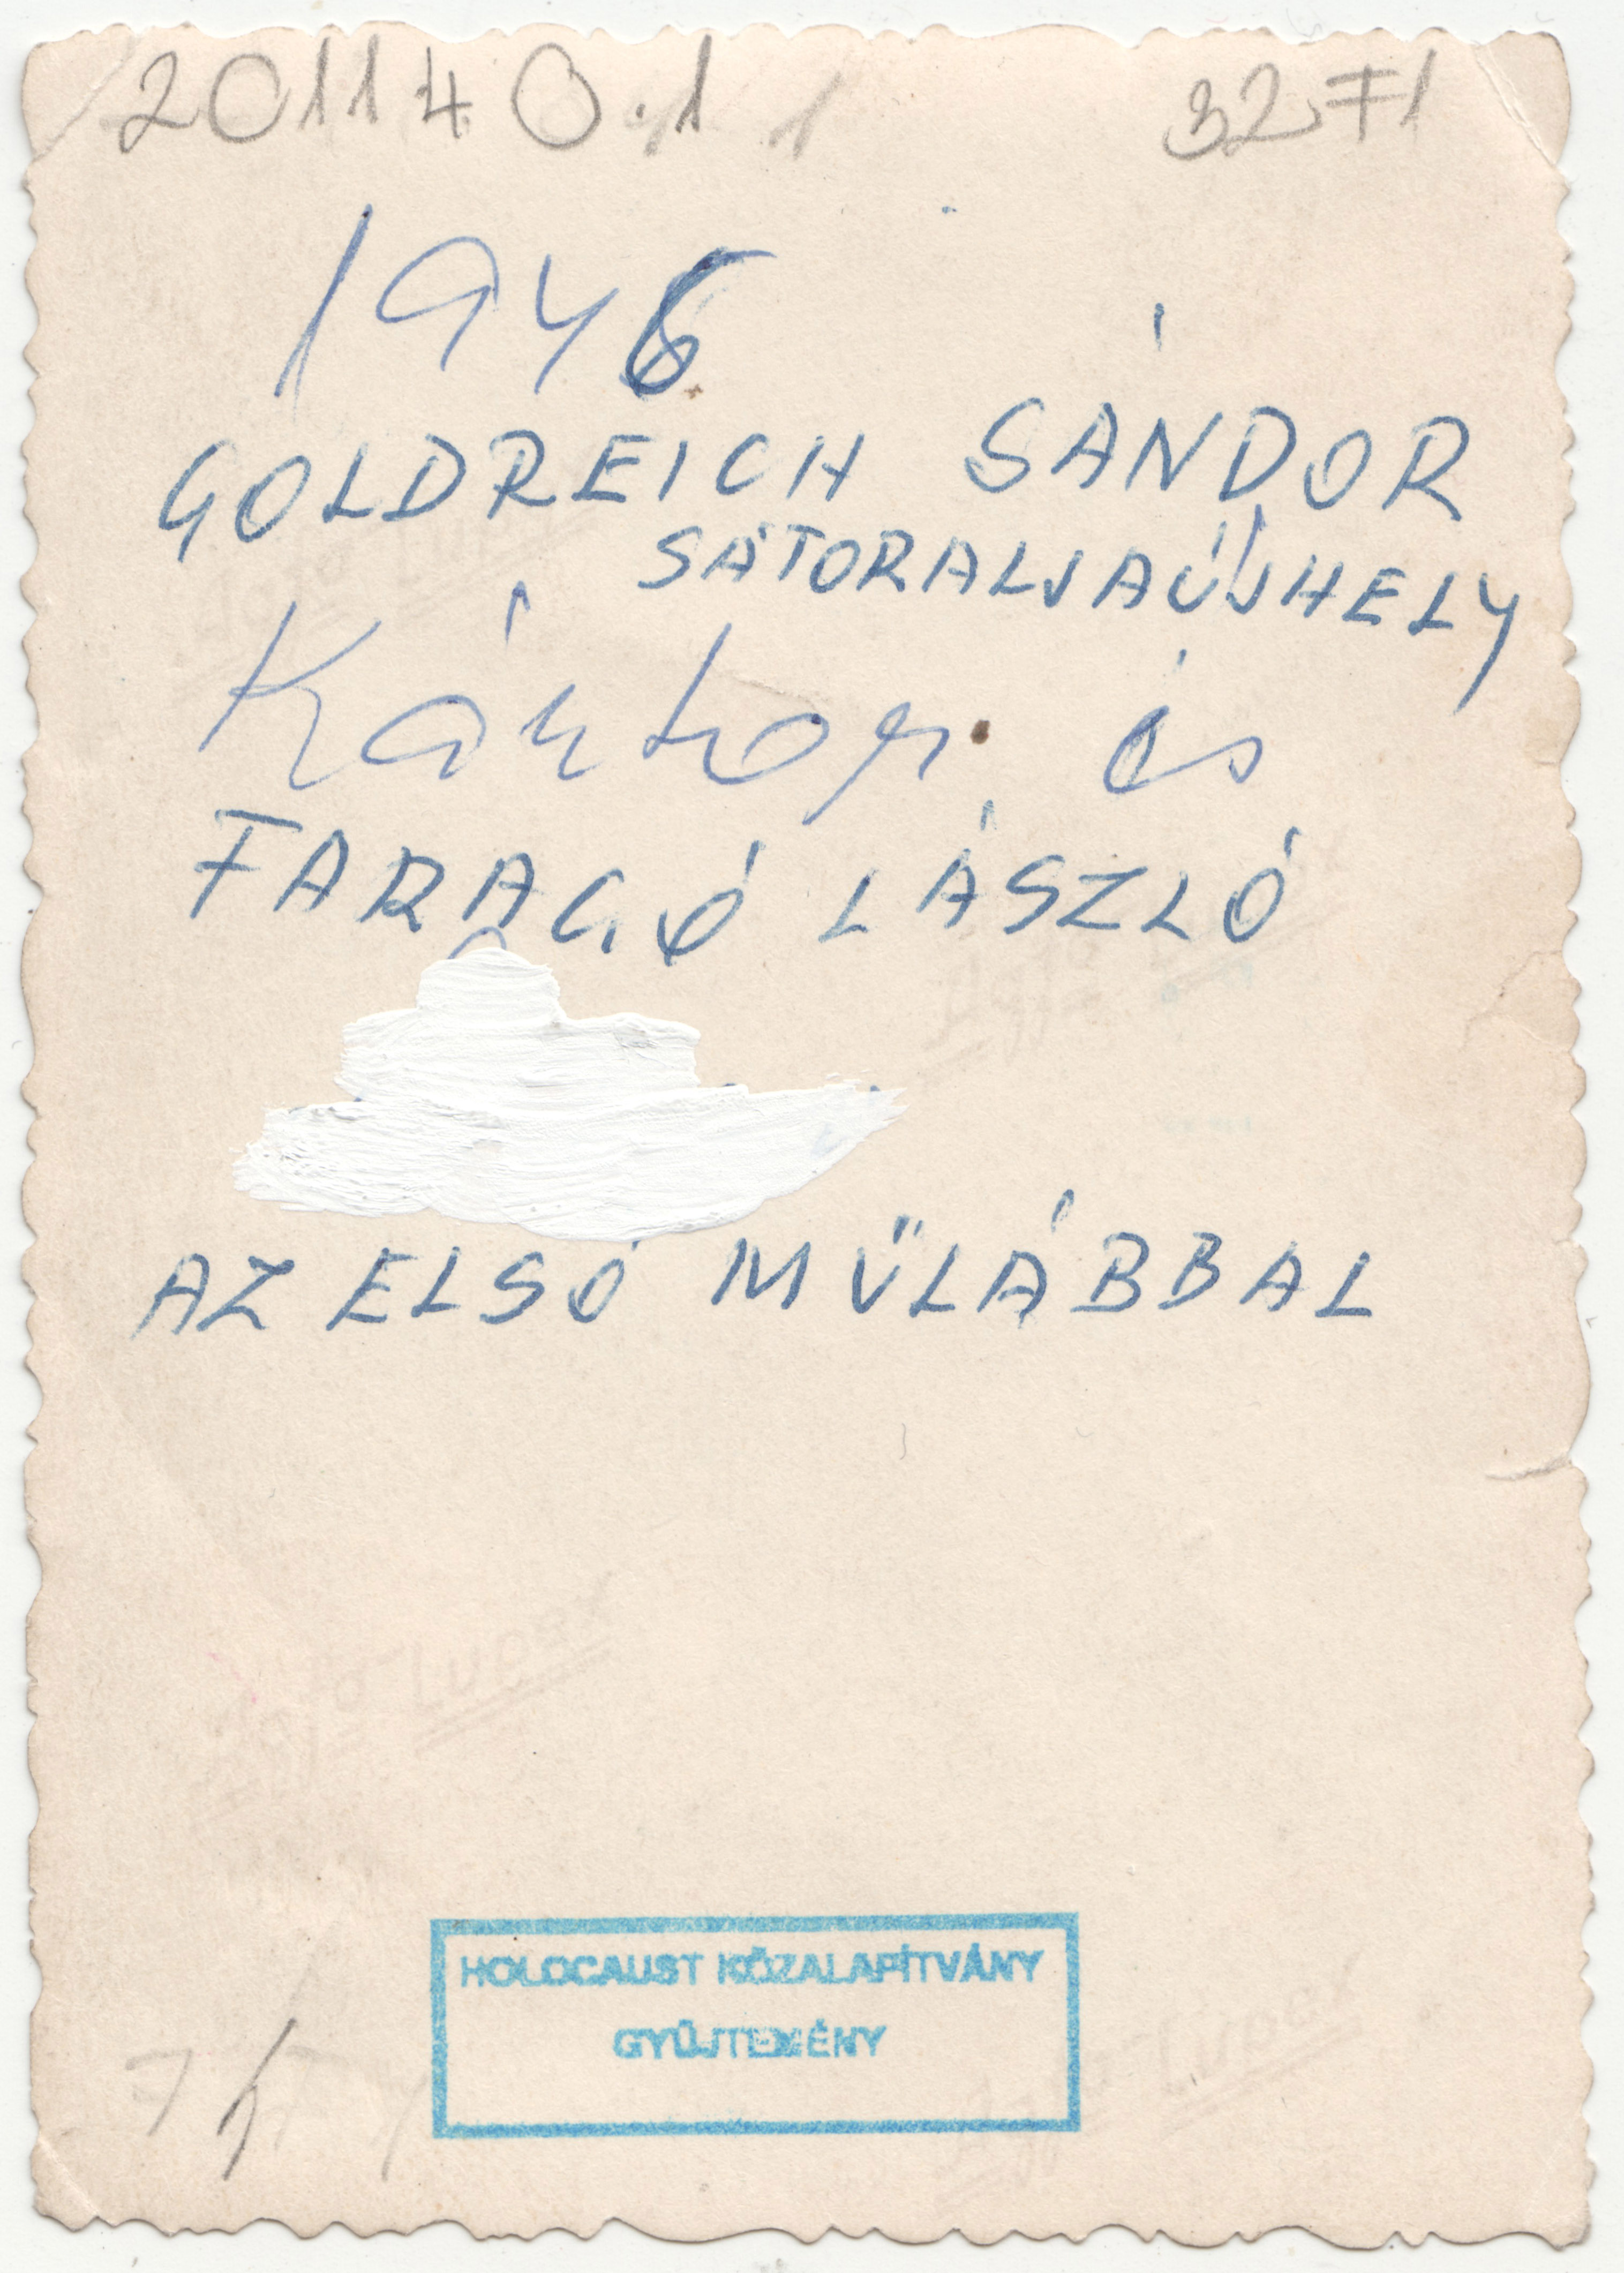 2011 40.1 3271
1946
GOLDREICH SÁNDOR
SÁTORALJAÚJHELY
Kántor és
FARAGÓ LÁSZLÓ
AZ ELSŐ MŰLÁBBAL
HOLOCAUST KÖZALAPÍTVÁNY
GYŰJTEMÉNY